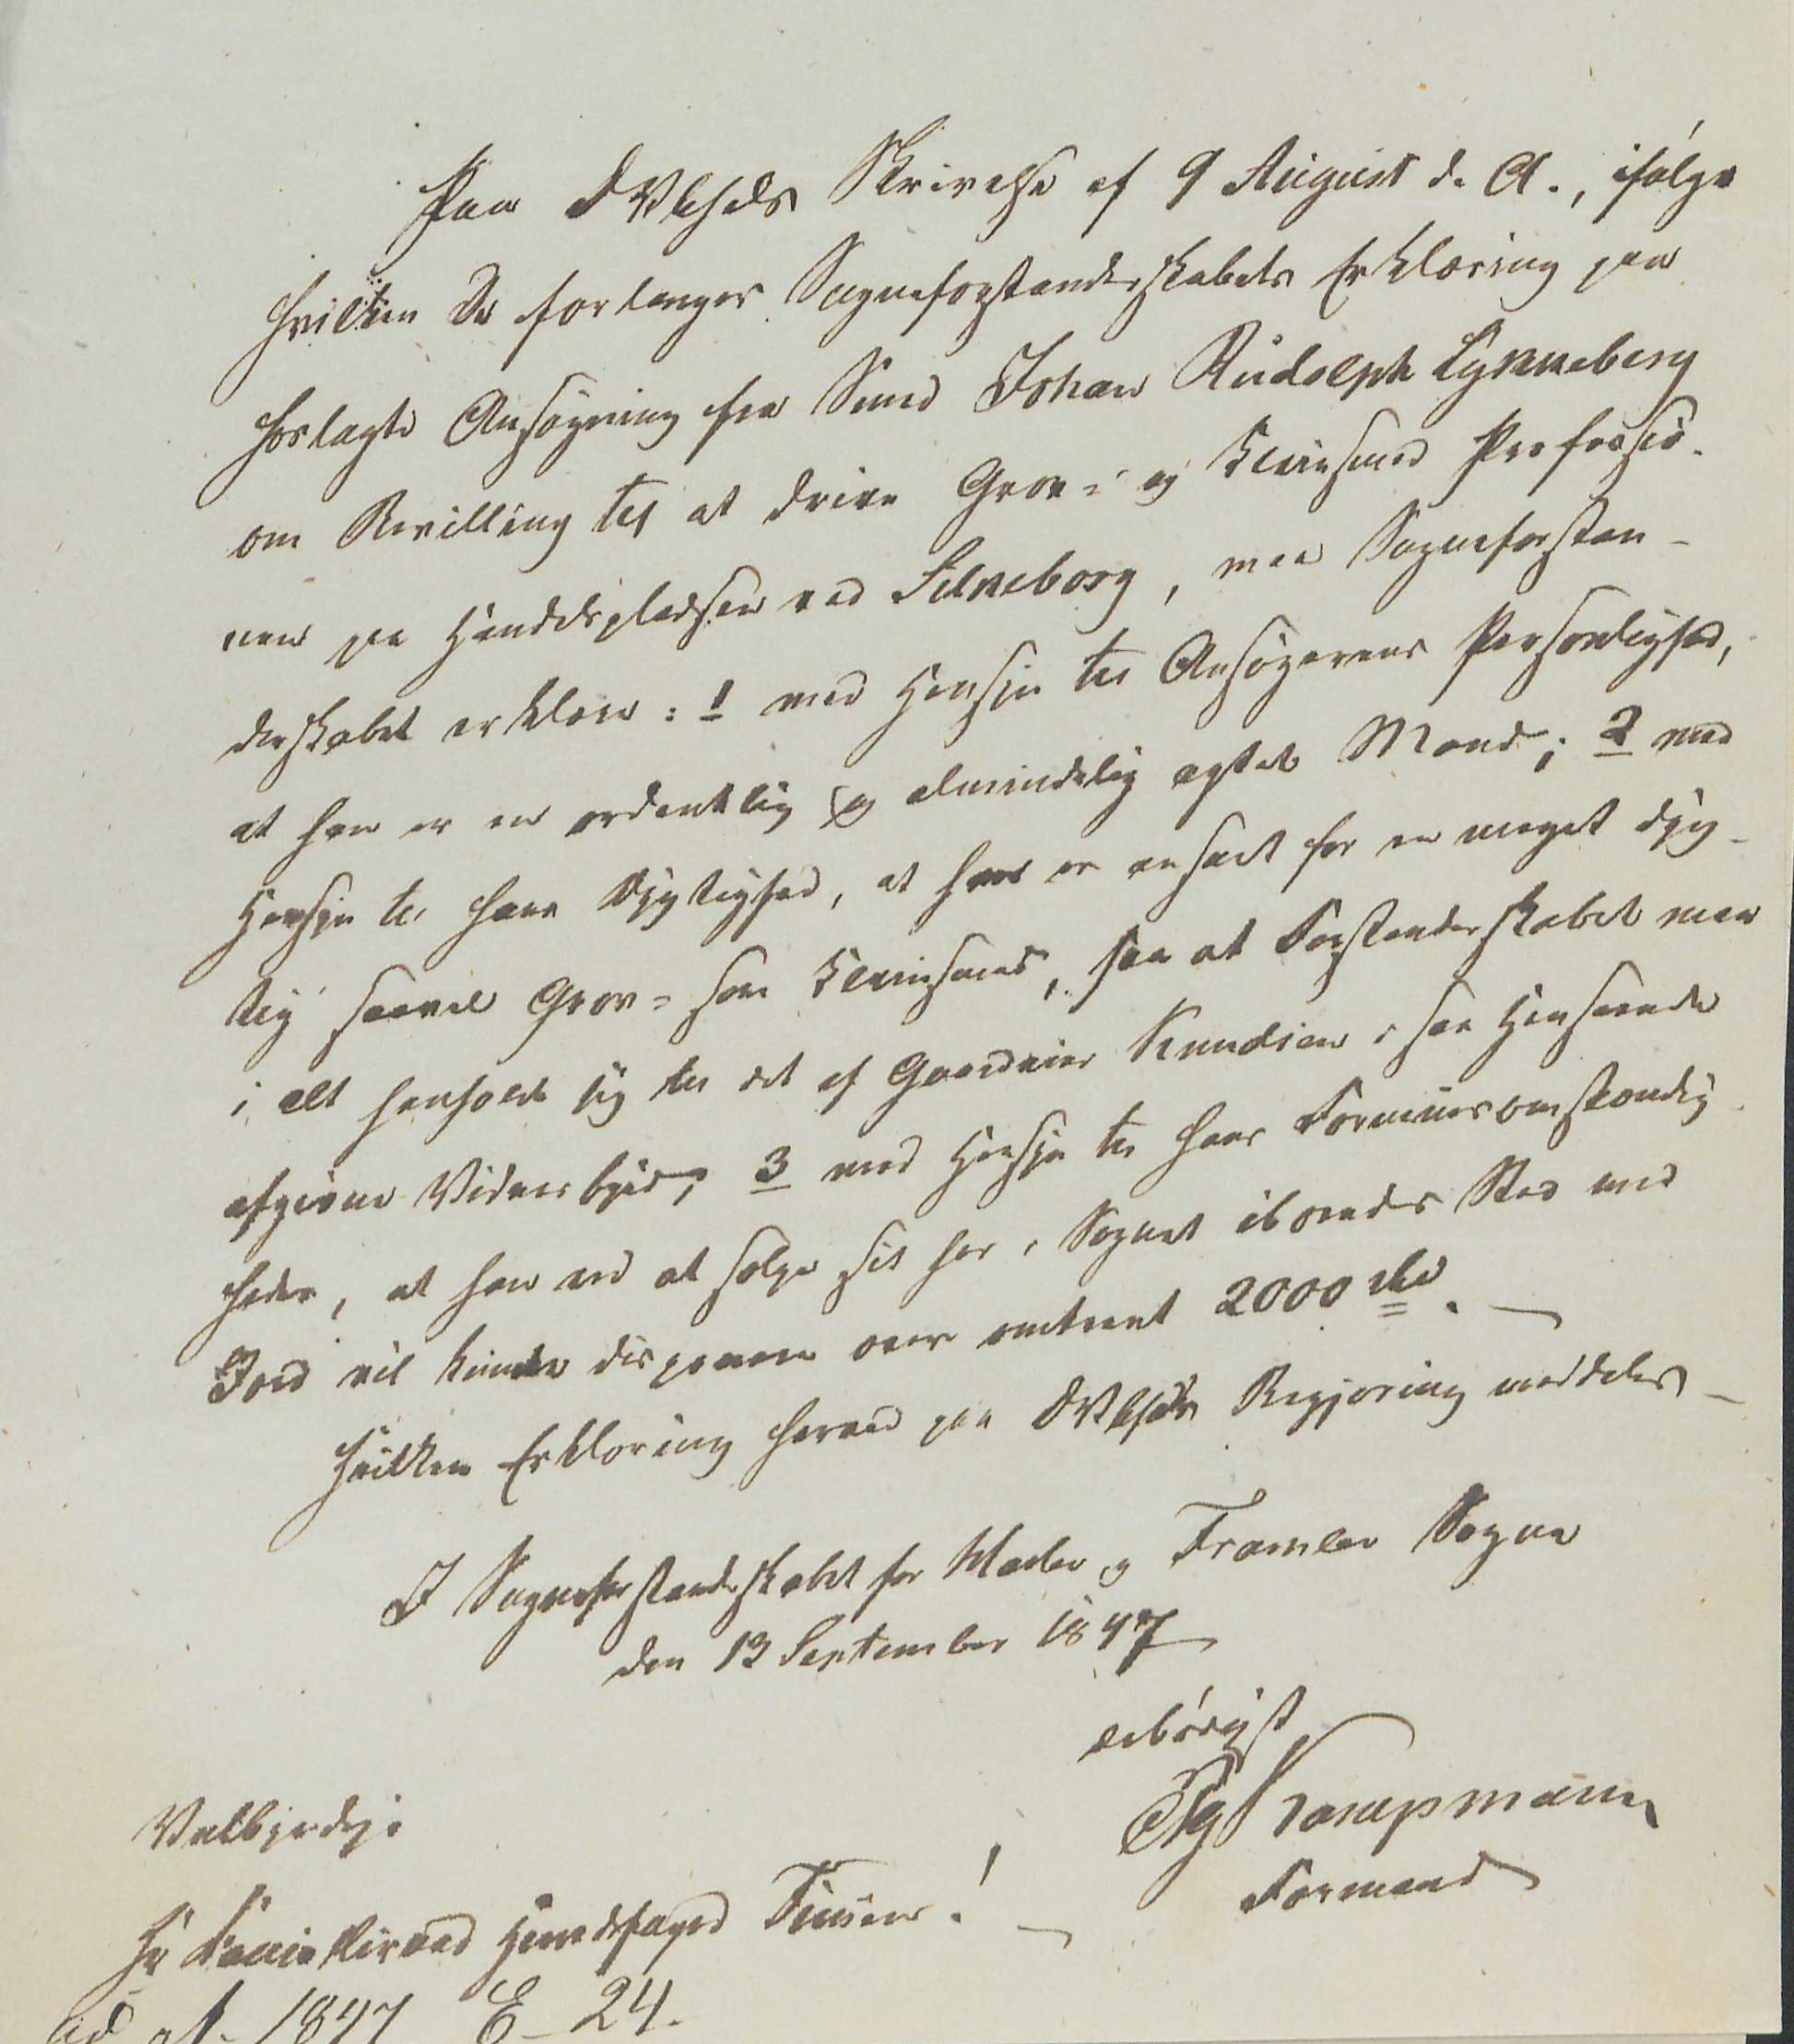 Paa DVbheds Skrivelse af 9 August d. A., ifølge
hvilken De forlanger Sogneforstanderskabets Erklæring paa
hoslagte Ansøgning fra Smed Johan Rudolph Lynneberg
om Bevilling til at drive Grov- og Kleinsmed Professio-
nen paa Handelspladsen ved Silkeborg, maa Sogneforstan-
derskabet erklære: 1 med Hensyn til Ansøgerens Personlighed,
at han er en ordentlig og almindelig agtet Mand; 2 med
Hensyn til hans Dygtighed, at han er anseet for en meget dyg-
tig saavel Grov- som Kleinsmed, saa at Forstanderskabet maa
i alt henholde sig til det af Gaardeier Knudsen i saa Henseende
afgivne Vidnesbyrd; 3 med Hensyn til hans Formuesomstændig-
heder, at han ved at sælge sit her i Sognet iboende Sted med
Jord vil kunde disponere over omtrent 2000 rbd. —
Hvilken Erklæring herved paa DVbheds Begjæring meddeles —
I Sogneforstanderskabet for Mader og Framlev Sogne
den 13 September 1847
ærbødigst
Koopmann
Formand
Velbyrdige
Hr Cancelliraad Herredsfoged Finsen! —
ad af 1847 E 24.